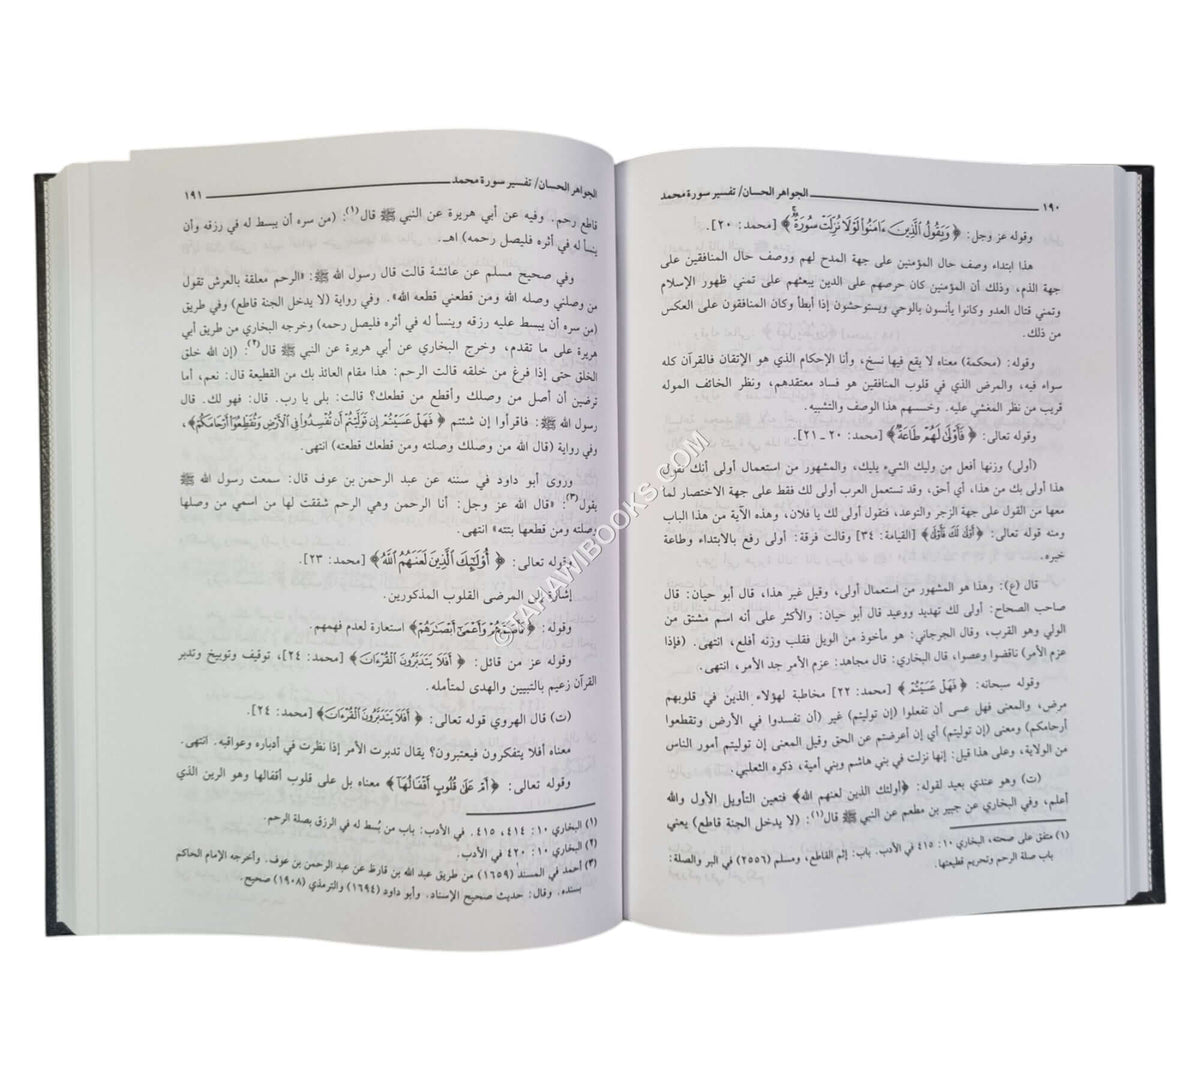 ١٩٠ الجواهر الحسان/ تفسير سورة محمد
وقوله عز وجل: ﴿وَيَقُولُ ٱلَّذِينَ ءَامَنُوا۟ لَوْلَا نُزِّلَتْ سُورَةٌ﴾ [محمد: ٢٠].
هذا ابتداء وصف حال المؤمنين على جهة المدح لهم ووصف حال المنافقين على
جهة الذم، وذلك أن المؤمنين كان حرصهم على الدين يبعثهم على تمني ظهور الإسلام
وتمني قتال العدو وكانوا يأنسون بالوحي ويستوحشون إذا أبطأ وكان المنافقون على العكس
من ذلك.
وقوله: (محكمة) معناه لا يقع فيها نسخ، وأنا الإحكام الذي هو الإتقان فالقرآن كله
سواء فيه، والمرض الذي في قلوب المنافقين هو فساد معتقدهم، ونظر الخائف الموله
قريب من نظر المغشي عليه. وخسسهم هذا الوصف والتشبيه.
وقوله تعالى: ﴿فَأَوْلَىٰ لَهُمْ طَاعَةٌ﴾ [محمد: ٢٠ ـ ٢١].
(أولى) وزنها أفعل من وليك الشيء يليك، والمشهور من استعمال أولى أنك تقول
هذا أولى بك من هذا، أي أحق، وقد تستعمل العرب أولى لك فقط على جهة الاختصار لما
معها من القول على جهة الزجر والتوعد، فتقول أولى لك يا فلان، وهذه الآية من هذا الباب
ومنه قوله تعالى: ﴿أَوْلَىٰ لَكَ فَأَوْلَىٰ﴾ [القيامة: ٣٤] وقالت فرقة: أولى رفع بالابتداء وطاعة
خبره.
قال (ع): وهذا هو المشهور من استعمال أولى، وقيل غير هذا، قال أبو حيان: قال
صاحب الصحاح: أولى لك تهديد ووعيد قال أبو حيان: والأكثر على أنه اسم مشتق من
الولي وهو القرب، وقال الجرجاني: هو مأخوذ من الويل فقلب وزنه أفلع، انتهى. (فإذا
عزم الأمر) ناقضوا وعصوا، قال البخاري: قال مجاهد: عزم الأمر جد الأمر، انتهى.
وقوله سبحانه: ﴿فَهَلْ عَسَيْتُمْ﴾ [محمد: ٢٢] مخاطبة لهؤلاء الذين في قلوبهم
مرض، والمعنى فهل عسى أن تفعلوا (إن توليتم) غير (أن تفسدوا في الأرض وتقطعوا
أرحامكم) ومعنى (إن توليتم) أي إن أعرضتم عن الحق وقيل المعنى إن توليتم أمور الناس
من الولاية، وعلى هذا قيل: إنها نزلت في بني هاشم وبني أمية، ذكره الثعلبي.
(ت) وهو عندي بعيد لقوله: ﴿أولئك الذين لعنهم الله﴾ فتعين التأويل الأول والله
أعلم، وفي البخاري عن جبير بن مطعم عن النبي ﷺ قال(١): (لا يدخل الجنة قاطع) يعني
(١) متفق على صحته، البخاري ١٠: ٤١٥ في الأدب. باب: إثم القاطع، ومسلم (٢٥٥٦) في البر والصلة:
باب صلة الرحم وتحريم قطيعتها.
الجواهر الحسان/ تفسير سورة محمد ١٩١
قاطع رحم. وفيه عن أبي هريرة عن النبي ﷺ قال(١): (من سره أن يبسط له في رزقه وأن
ينسأ له في أثره فليصل رحمه) اهـ.
وفي صحيح مسلم عن عائشة قالت قال رسول الله ﷺ: «الرحم معلقة بالعرش تقول
من وصلني وصله الله ومن قطعني قطعه الله». وفي رواية (لا يدخل الجنة قاطع) وفي طريق
(من سره أن يبسط عليه رزقه وينسأ له في أثره فليصل رحمه) وخرجه البخاري من طريق أبي
هريرة على ما تقدم، وخرج البخاري عن أبي هريرة عن النبي ﷺ قال(٢): (إن الله خلق
الخلق حتى إذا فرغ من خلقه قالت الرحم: هذا مقام العائذ بك من القطيعة قال: نعم، أما
ترضين أن أصل من وصلك وأقطع من قطعك؟ قالت: بلى يا رب. قال: فهو لك. قال
رسول الله ﷺ: فاقرأوا إن شئتم ﴿فَهَلْ عَسَيْتُمْ إِن تَوَلَّيْتُمْ أَن تُفْسِدُوا۟ فِى ٱلْأَرْضِ وَتُقَطِّعُوٓا۟ أَرْحَامَكُمْ﴾،
وفي رواية (قال الله من وصلك وصلته ومن قطعك قطعته) انتهى.
وروى أبو داود في سننه عن عبد الرحمن بن عوف قال: سمعت رسول الله ﷺ
يقول(٣): «قال الله عز وجل: أنا الرحمن وهي الرحم شققت لها من اسمي من وصلها
وصلته ومن قطعها بتته» انتهى.
وقوله تعالى: ﴿أُو۟لَـٰٓئِكَ ٱلَّذِينَ لَعَنَهُمُ ٱللَّهُ﴾ [محمد: ٢٣].
إشارة إلى المرضى القلوب المذكورين.
وقوله: ﴿فَأَصَمَّهُمْ وَأَعْمَىٰٓ أَبْصَـٰرَهُمْ﴾ استعارة لعدم فهمهم.
وقوله عز من قائل: ﴿أَفَلَا يَتَدَبَّرُونَ ٱلْقُرْءَانَ﴾ [محمد: ٢٤]، توقيف وتوبيخ وتدبر
القرآن زعيم بالتبيين والهدى لمتأمله.
(ت) قال الهروي قوله تعالى: ﴿أَفَلَا يَتَدَبَّرُونَ ٱلْقُرْءَانَ﴾ [محمد: ٢٤].
معناه أفلا يتفكرون فيعتبرون؟ يقال تدبرت الأمر إذا نظرت في أدباره وعواقبه. انتهى.
وقوله تعالى: ﴿أَمْ عَلَىٰ قُلُوبٍ أَقْفَالُهَآ﴾ معناه بل على قلوب أقفالها وهو الرين الذي
(١) البخاري ١٠: ٤١٤، ٤١٥. في الأدب: باب من بُسط له في الرزق بصلة الرحم.
(٢) البخاري ١٠: ٤٢٠ في الأدب.
(٣) أحمد في المسند (١٦٥٩) من طريق عبد الله بن قارظ عن عبد الرحمن بن عوف. وأخرجه الإمام الحاكم
بسنده. وقال: حديث صحيح الإسناد. وأبو داود (١٦٩٤) والترمذي (١٩٠٨) صحيح.
©TAHAWIBOOKS.COM